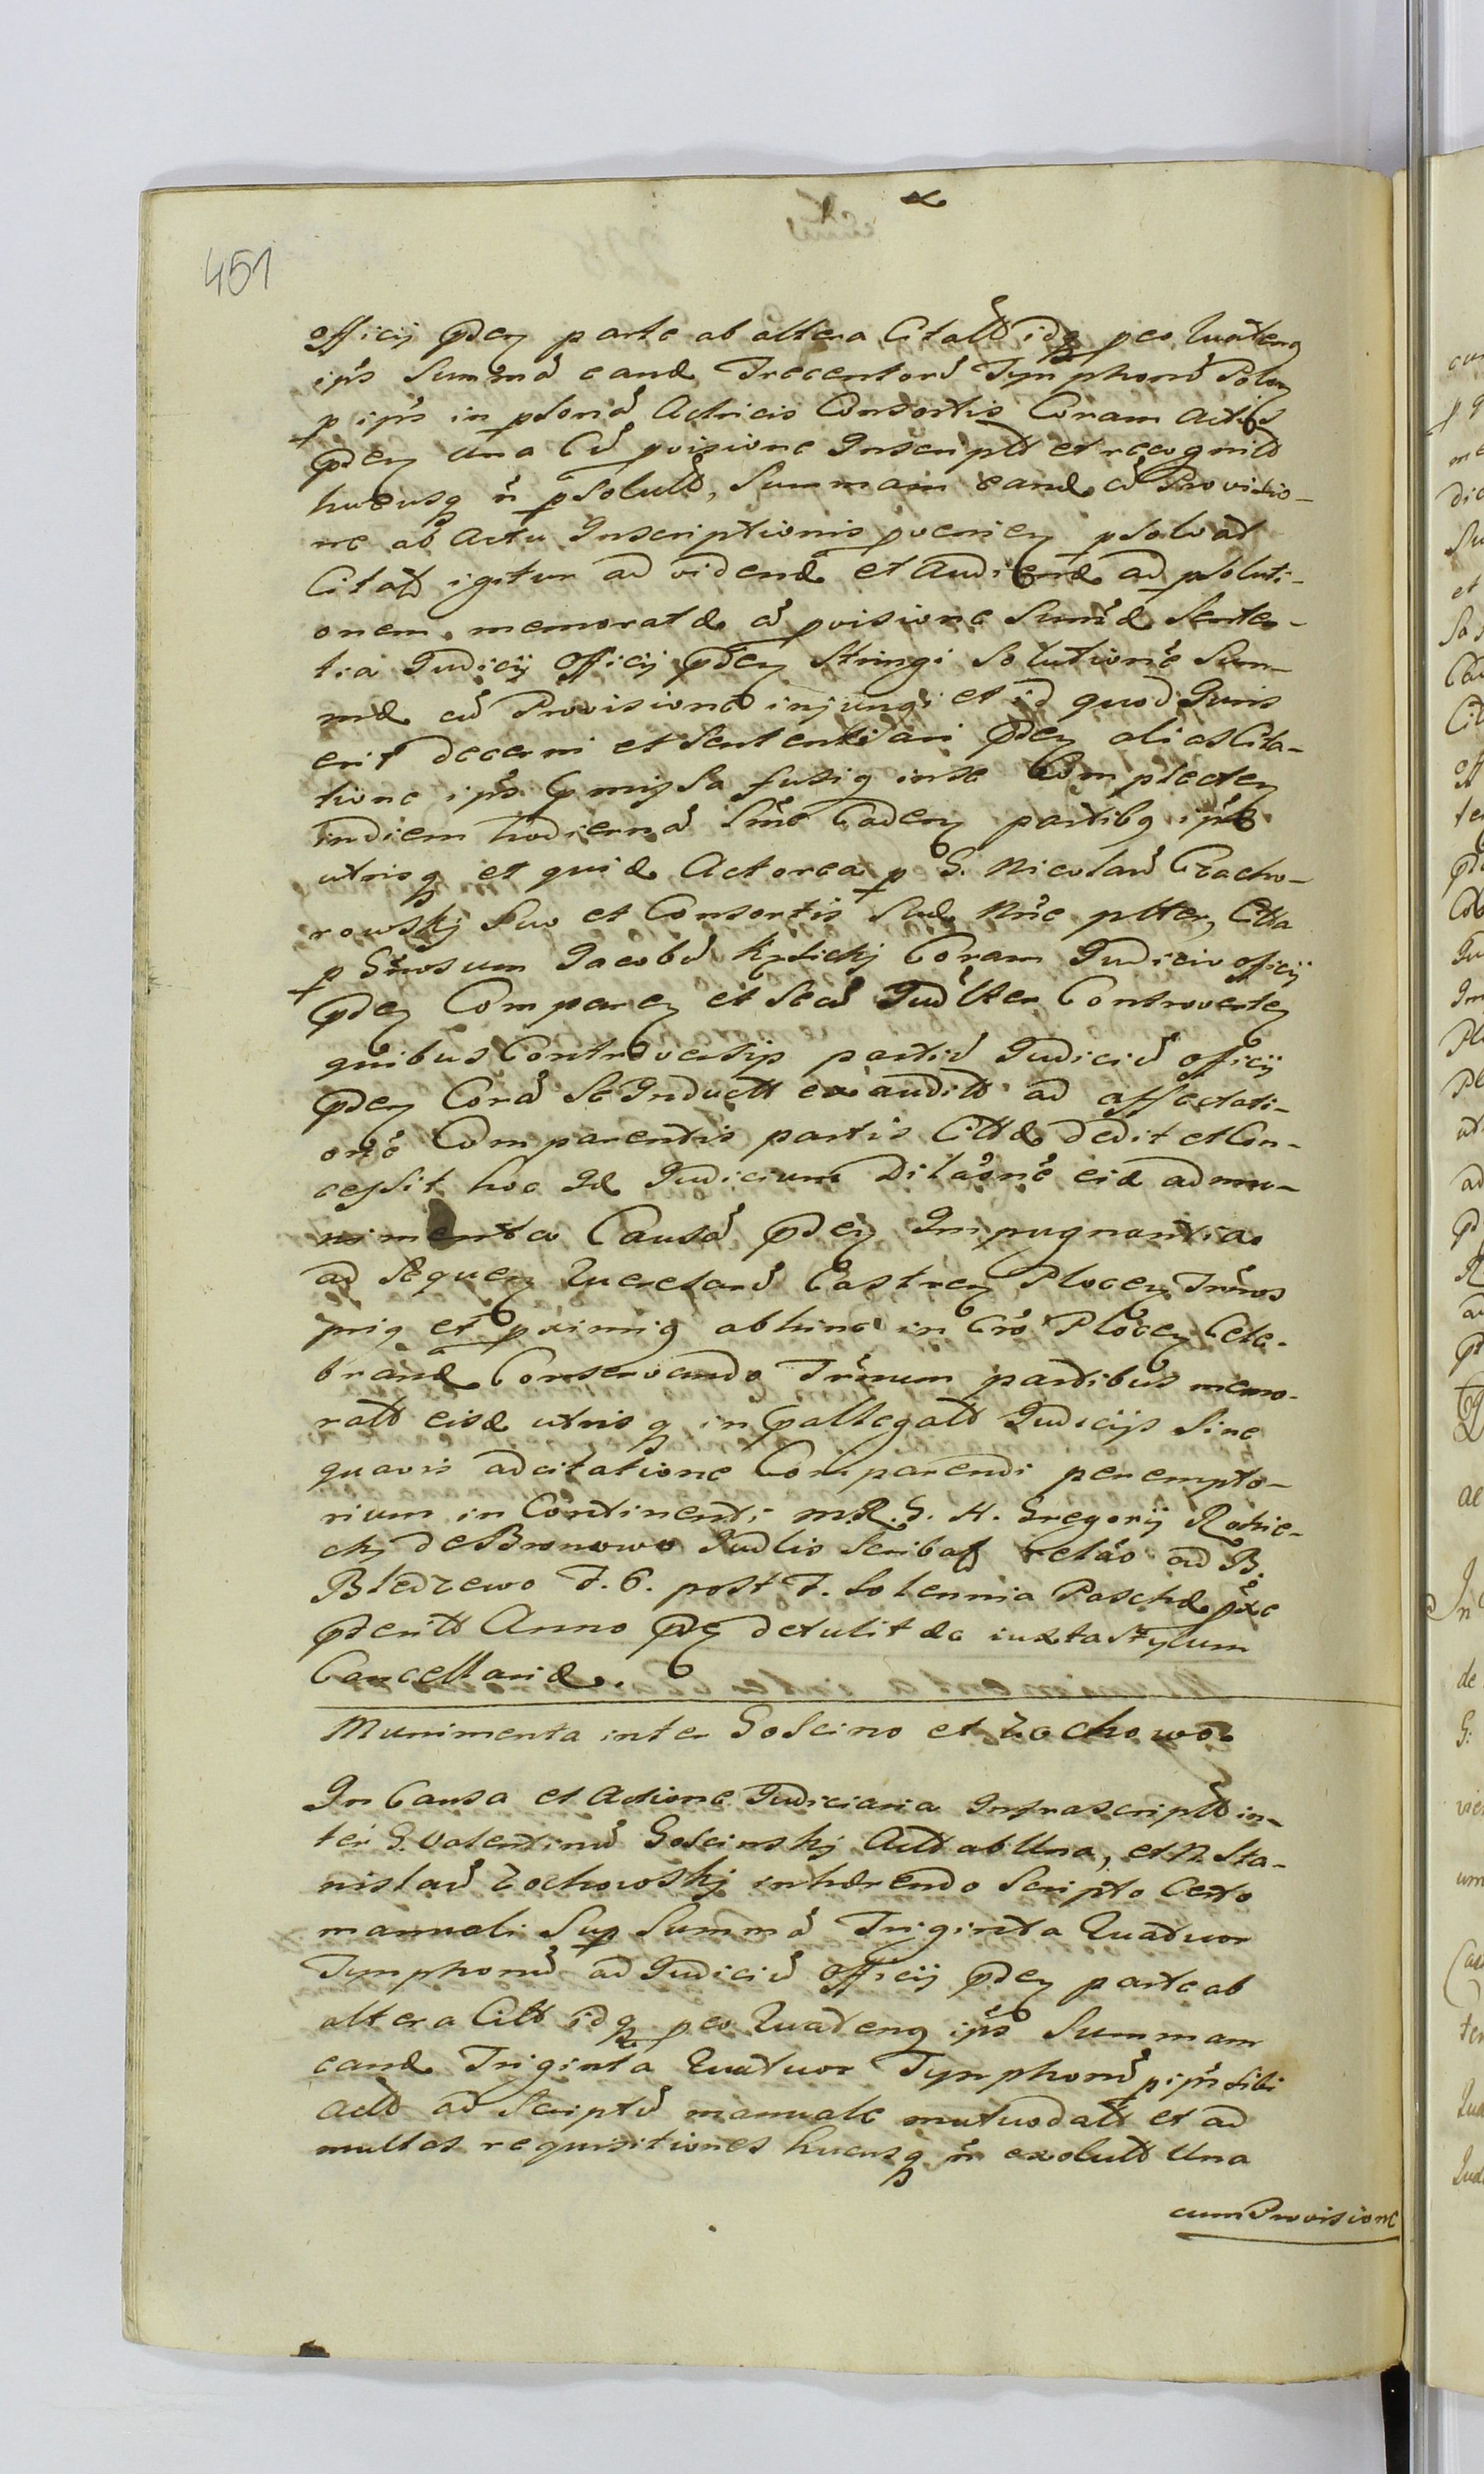 451
officij pden parte ab altera Citatt idq peo Quateng
ips Summa eand Trecentoru Tynphonu Polon
p ips in psona Actricis Consortis Coram actis
pden una Cu pvisione Inscriptt et recognitt
hucusq n psolutt, Summam eand cu Provisio-
ne ab actu Inscriptionis pvenien psolvat
Citatt igitur ad vidend et Audiend ad psoluti-
onem memoratæ cu pvisione Summæ Senten-
tia Judicij officij pden Stringi Solutione Sum-
mæ cu Provisione injungi et id quod Juris
erit decerni et Sententiari pden alias Cita-
tione ips pmissa fusig inse Complecten
indiem hodierna Sme Caden partibg ips
utrisq et quid Actorea p G. Nicolau Czacho-
rowskj Suo et Consortis Suæ Nne pltter, Citta
p Gnosum Jacobu Krsickj Coram Judicio officij
pden Comparen et Secu Judlter Controverten
quibus Controversijs partiu Judiciu officij
pden Cora Se Inductt exauditt ad affectati-
one Comparentis partis Cittæ dedit et Con-
cessit hoc Id Judicium Dilaone eid ad mu-
nimenta Causa pden Impugnantia
ad Sequen Querelaru Castren Plocen Trmos
prig et pximig abhinc in Cro Plocen Cele-
brand Conservando Trmum partibus memo-
ratt eisd utrisq in pallegatt Judicijs Sine
quavis adcitatione Comparendi perempto-
rium in Continenti M. R. G. H. Gregorij Rokic-
ckj de Bronowo Judlis Scribæ Relao ad B.
Bledzewo F. 6. post F. Solennia Paschæ pxe
pteritt Anno pden detulit &c iuxta stylum
Cancellariæ.
Munimenta inter Goscino et Zochowo
In Causa et Actione Judiciaria Infrascriptt in-
ter G. Valentinu Goscinskj Actt ab Una, et N. Sta-
nislau Zochowskj inhærendo Scripto Certo
manuali Sup Summa Triginta Quatuor
Tynphonu ad Judiciu officij pden parte ab
altera Citt idq peo Quateng ips Summam
eand Triginta Quatuor Tynphonu p ips sibi
actt ad Scriptu manuale mutuodatt et ad
multas requisitiones hucusq n exolutt Una
cum Provisione